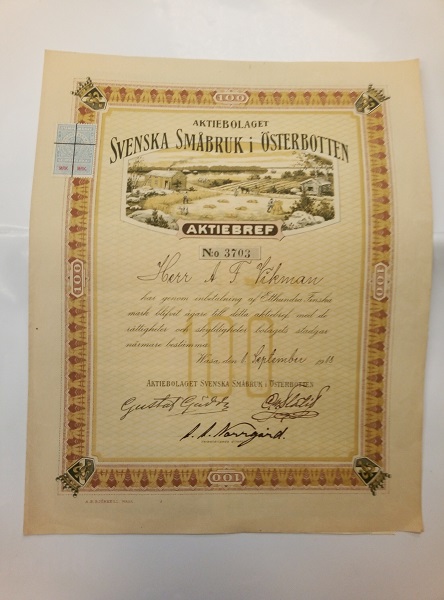 100
AKTIEBOLAGET
SVENSKA SMÅBRUK i ÖSTERBOTTEN
AKTIEBREF
No 3703
Herr A F Vikman
har genom inbetalning af Etthundra Finska
mark blifvit ägare till detta aktiebref med de
rättigheter och skyldigheter bolagets stadgar
närmare bestämma.
Wasa den 1 September
AKTIEBOLAGET SVENSKA SMÅBRUK I ÖSTERBOTTEN
Gustaf
A. A. Norrgård.
100
100
100